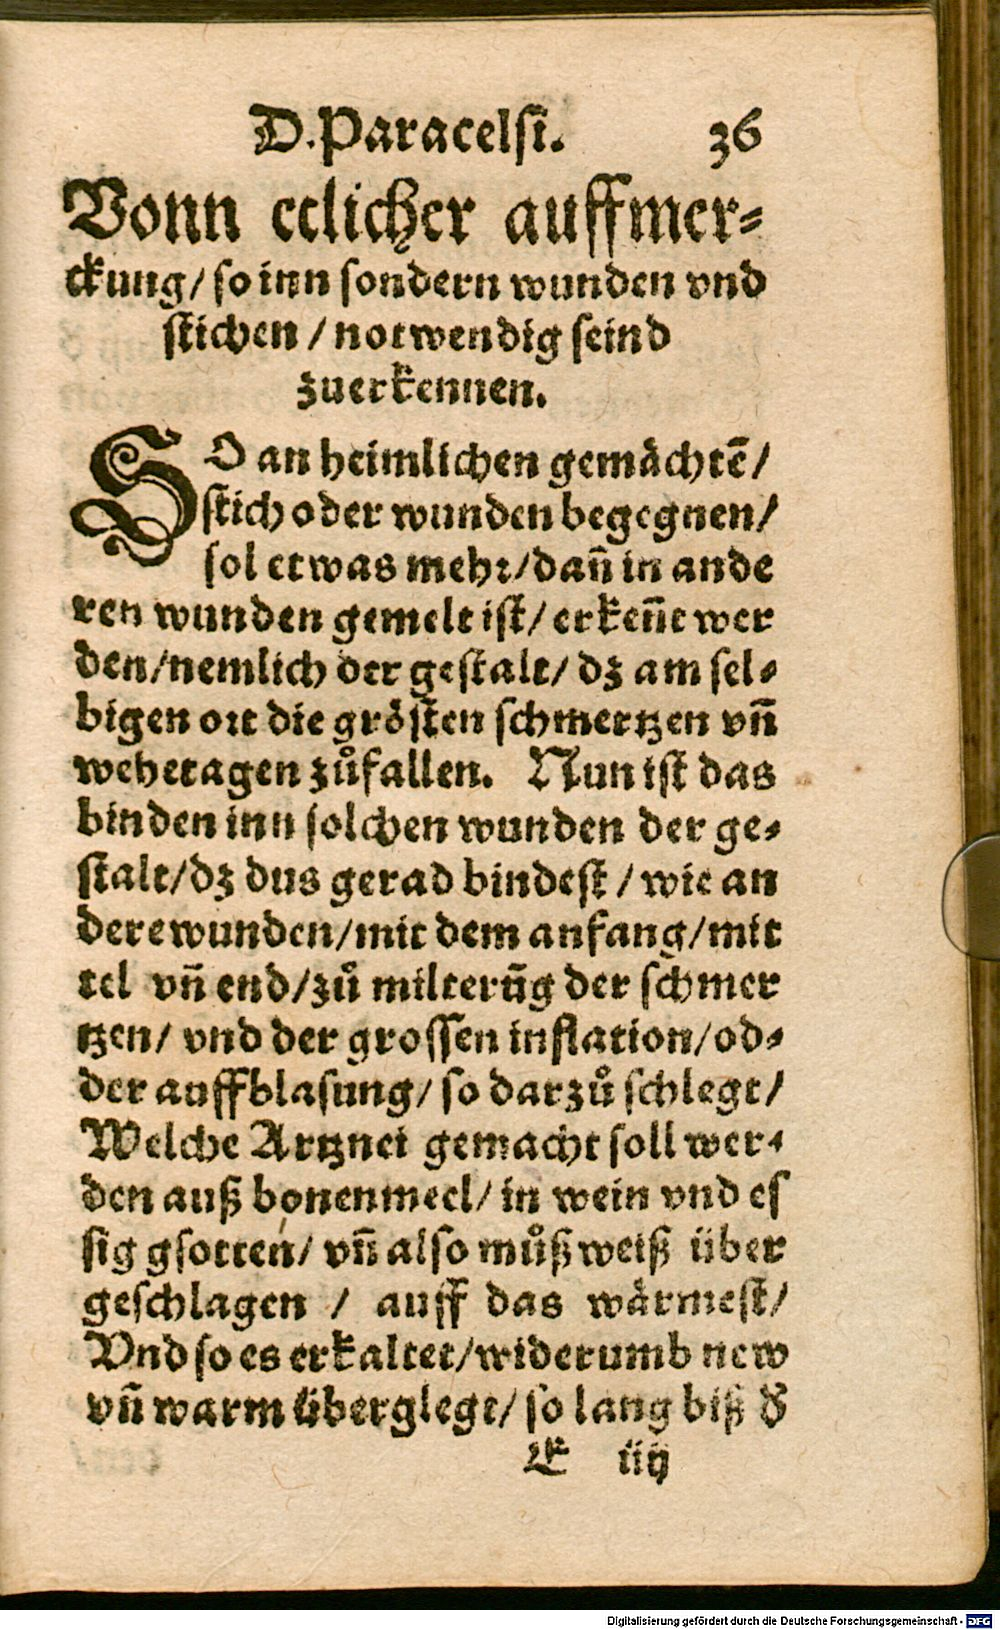 D. Paracelsi. 36
Vonn etlicher auffmer-
ckung/ so inn sondern wunden vnd
stichen / notwendig seind
zuerkennen.
SO an heimlichen gemächtē/
stich oder wunden begegnen/
sol etwas mehr/dañ in ande
ren wunden gemelt ist/ erkeñt wer
den/nemlich der gestalt/ dz am sel-
bigen ort die grösten schmertzen vñ
wehetagen zůfallen. Nun ist das
binden inn solchen wunden der ge-
stalt/dz dus gerad bindest / wie an
dere wunden/mit dem anfang/mit
tel vñ end/zů milterũg der schmer
tzen/ vnd der grossen inflation/od-
der auffblasung/ so darzů schlegt/
Welche Artznei gemacht soll wer-
den auß bonenmeel/ in wein vnd es
sig gsotten/ vñ also můßweiß über
geschlagen / auff das wärmest/
Vnd so es erkaltet/widerumb new
vñ warm überglegt/ so lang biß d̕
E iiij
Digitalisierung gefördert durch die Deutsche Forschungsgemeinschaft - DFG